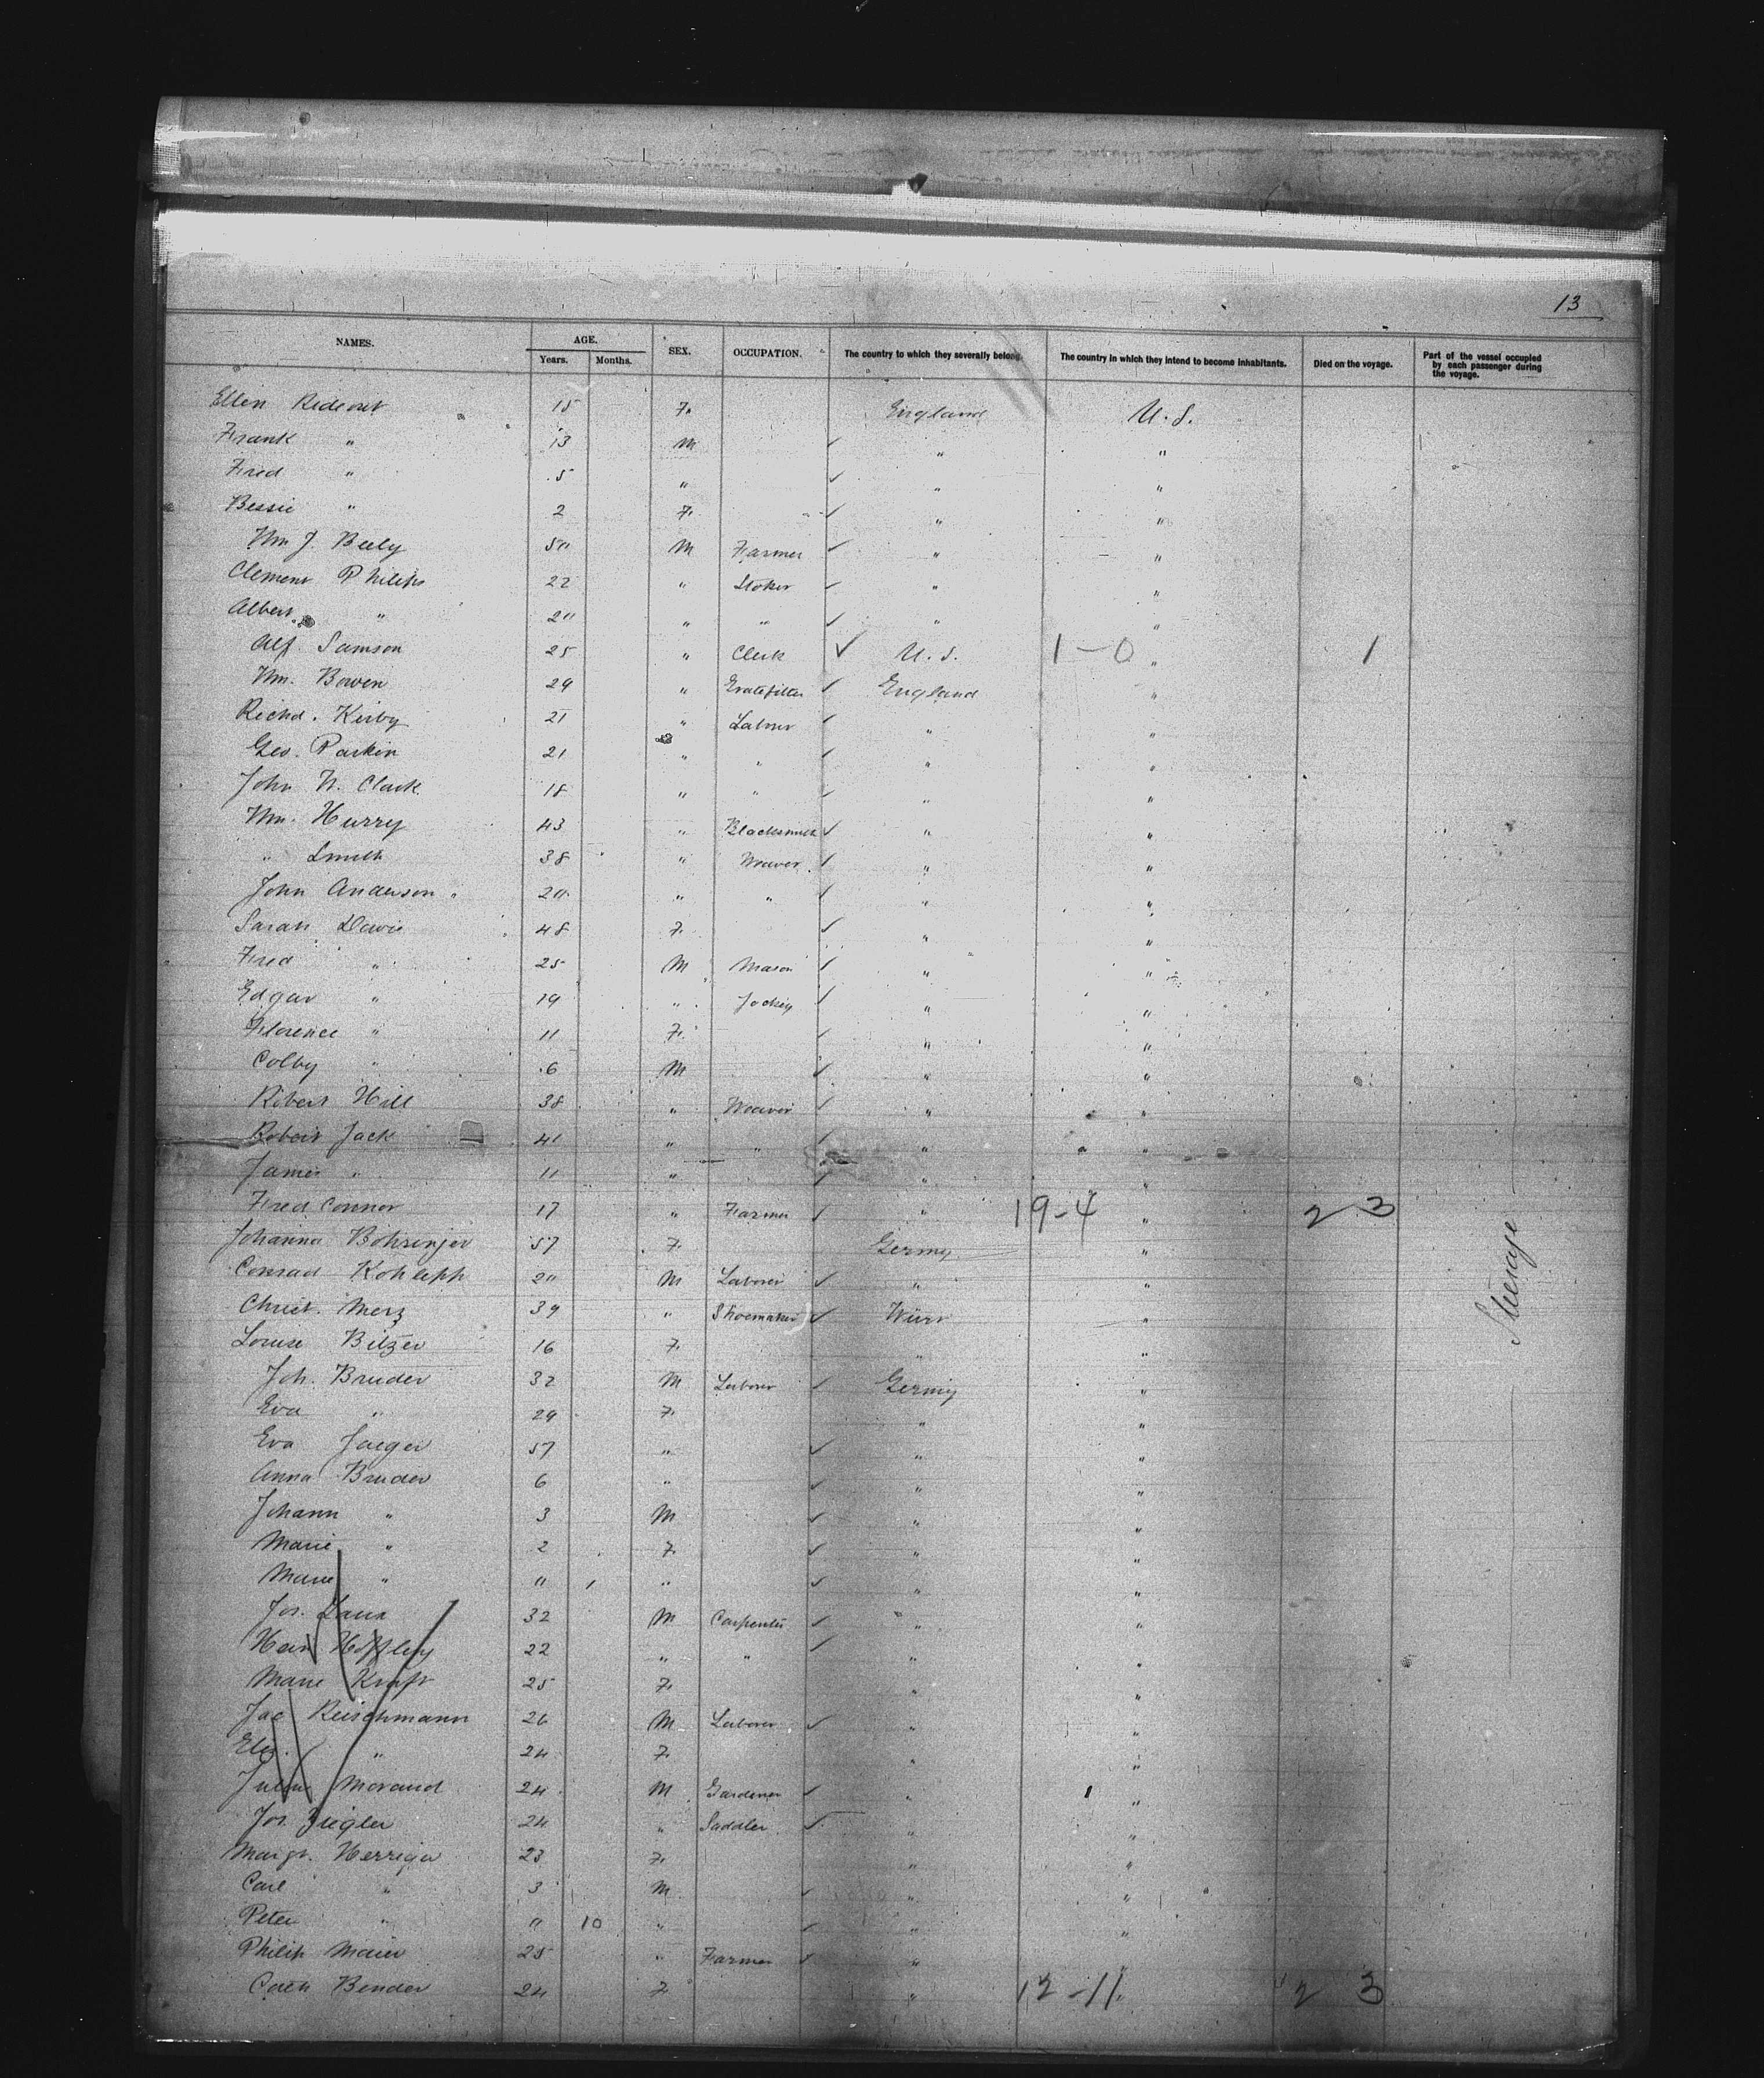 13
NAMES. AGE. SEX. OCCUPATION. The country to which they severally belong. The country in which they intend to become inhabitants. Died on the voyage. Part of the vessel occupied by each passenger during the voyage.
Years. Months.
Ellen Rideout 15 F. England U.S.
Frank " 13 M " "
Fred " 5 " " "
Bessie " 2 F. " "
Wm J. Beely M Farmer " "
Clement Philips 22 " Stoker " "
Albert " 2" " " " "
Alf. Samson 25 " Clerk U.S. 1-0 " 1
Wm. Bowen 29 " Gratefitter England "
Richd. Kirby 21 " Labour " "
Geo. Parkin 21 " " " "
John W. Clark 18 " " " "
Wm. Hurry 43 " Blacksmith " "
" Smith 38 " Weaver " "
John Anderson 2" " " " "
Sarah Davis 48 F. " "
Fred " 25 M Mason " "
Edgar " 19 " Jockey " "
Florence " 11 F. " "
Colby " 6 M " "
Robert Hill 38 " Weaver " "
Robert Jack 41 " " " "
James " 11 " " "
Fred Connor 17 " Farmer " 19-4 " 2 3
Johanna Bohringer 57 F. Germy "
Conrad Kohlepp 2" M Laborer " "
Christ. Merz 39 " Shoemaker Würr "
Louise Bitzer 16 F. " "
Joh. Bruder 32 M Laborer Germy "
Eva " 29 F. " "
Eva Jaeger 57 " " "
Anna Bruder 6 " " "
Johann " 3 M " "
Marie " 2 F. " "
Marie " " 1 " " "
Jos. 32 M Carpenter " "
22 " " " "
Marie Kraft 25 F. " "
Jac Reischmann 26 M Laborer " "
Elis. " 24 F. " "
Morand 24 M Gardener " "
Jos. Ziegler 24 " Saddler " "
Margt. Herriger 23 F. " "
Carl " 3 M " "
Peter " " 10 " " "
Philip Maier 25 " Farmer " "
Cath Bender 24 F. " 12-11 2 3
Steerage